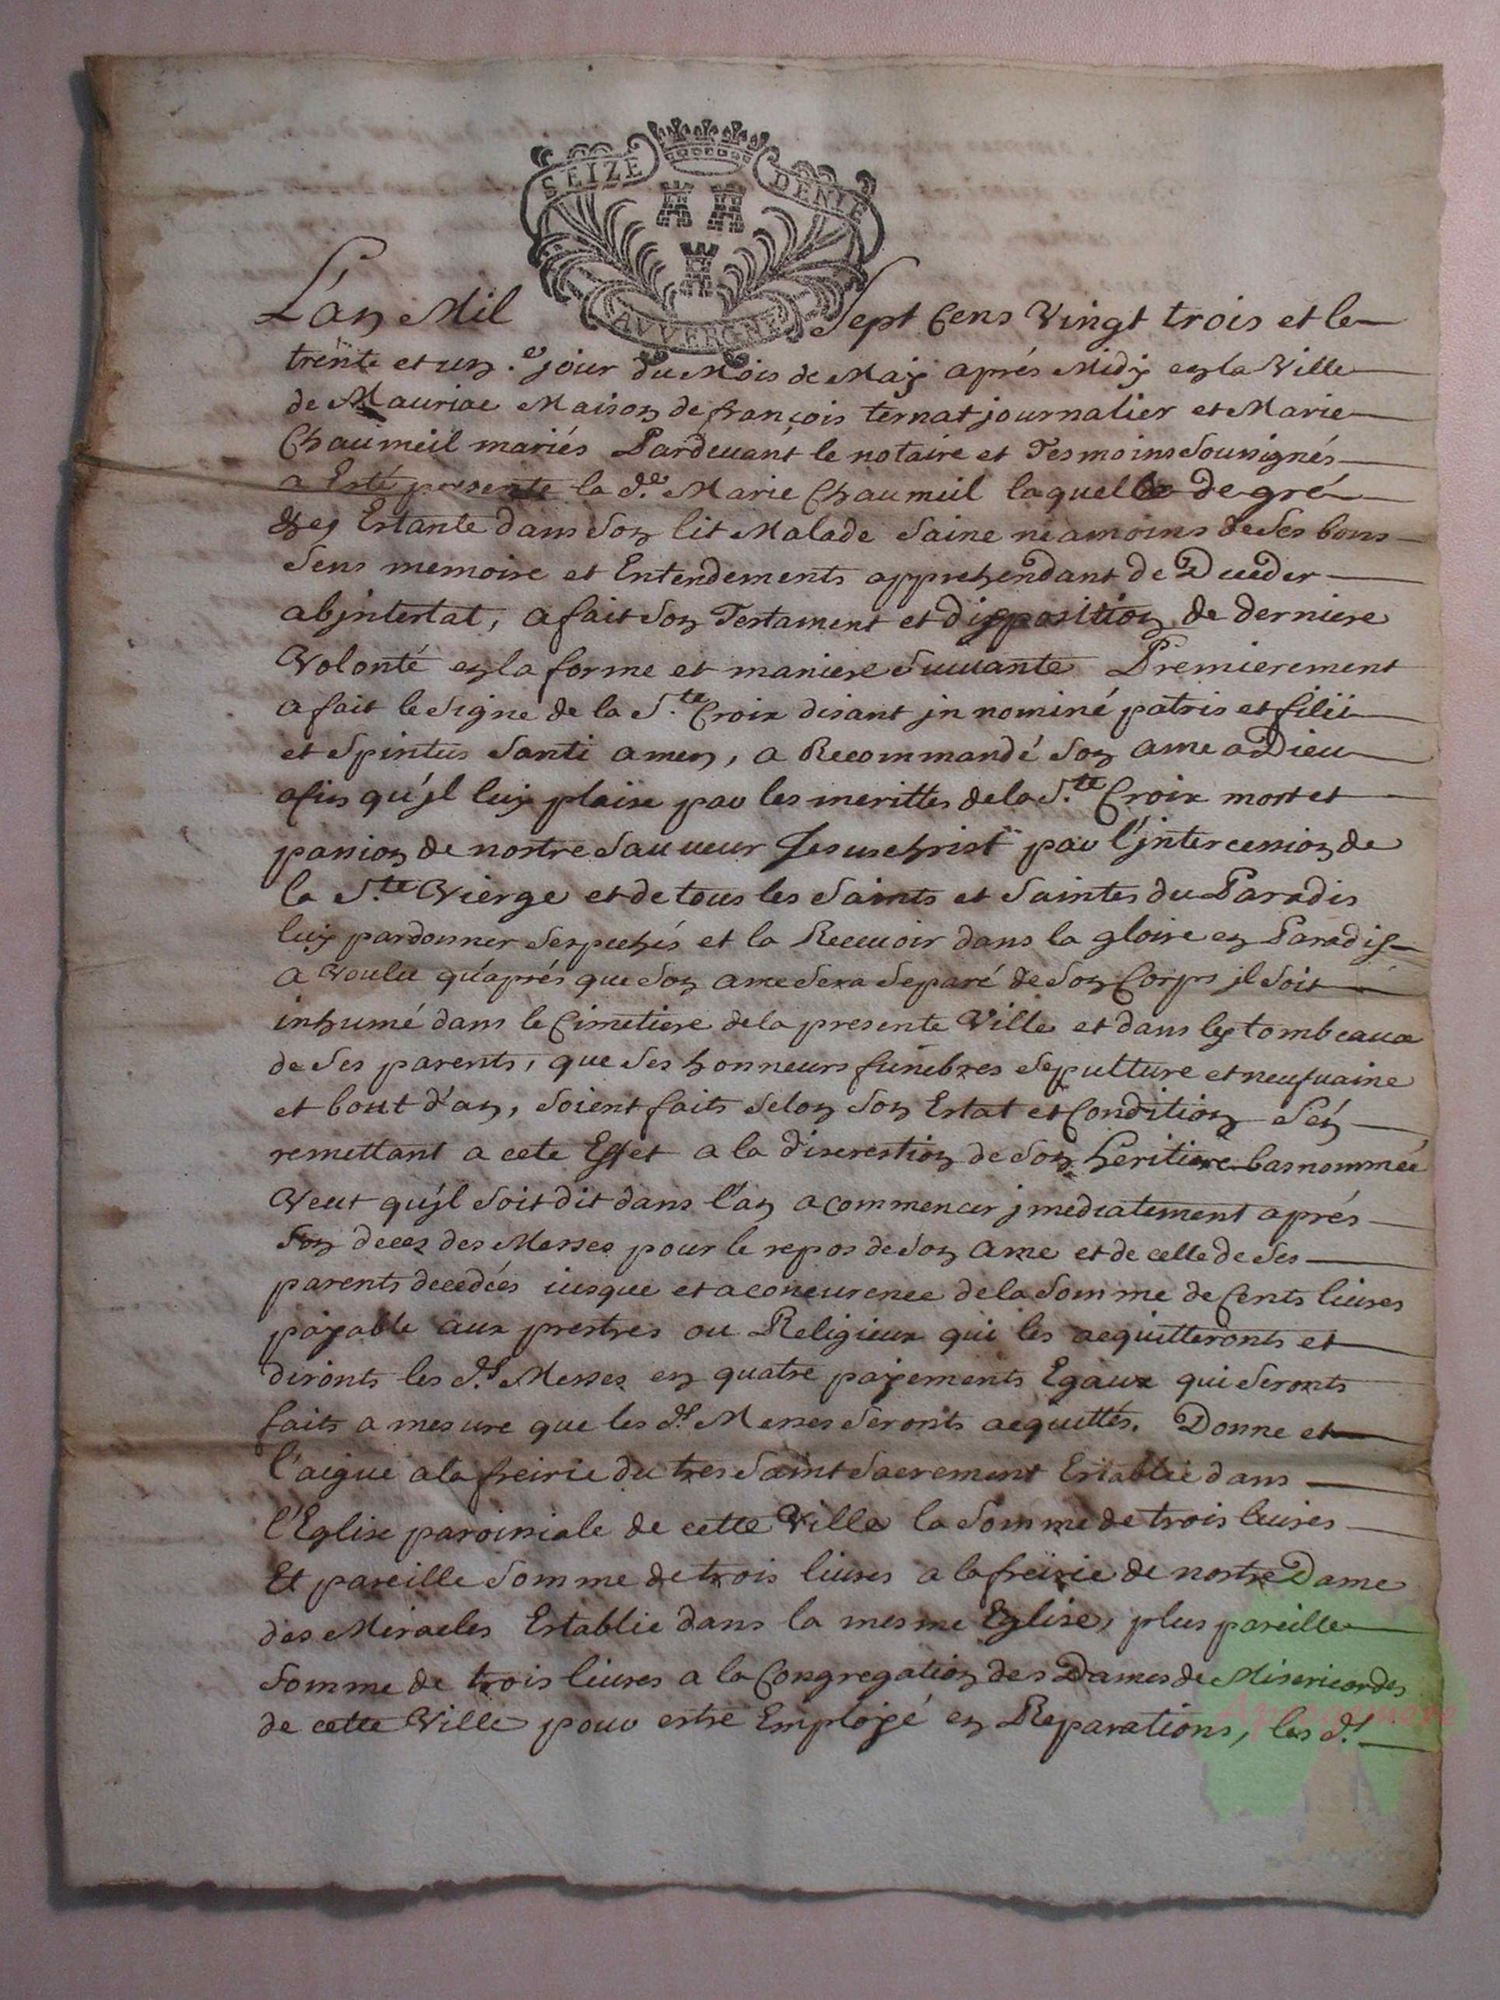 SEIZE DENIE
AVVERGNE
L'an Mil Sept Cens Vingt trois et le
trente et un.e jour du Mois de May aprés Midy en la Ville
de Mauriac Maison de françois ternat journalier et Marie
Chaumeil mariés Pardeuant le notaire et Tesmoins Soussignés
a Esté presente la d.e Marie Chaumeil laquelle de gré
Estante dans Son lit Malade Saine neamoins de Ses bons
Sens memoire et Entendements apprehendant de Deceder
abjntestat, a fait Son Testament et disposition de derniere
Volonté en la forme et maniere Suiuante Premierement
a fait le Signe de la S.te Croix disant jn nominé patris et filii
et Spiritus Santi amen, a Recommandé Son ame a Dieu
afin qu'jl luy plaise par les merittes de la S.te Croix mort et
passion de nostre Sauueur Jesuschrist par l'jntercession de
la S.te Vierge et de tous les Saints et Saintes du Paradis
luy pardonner Ses pechés et la Receuoir dans la gloire en Paradis
a Voulu qu'aprés que Son ame Sera Separé de Son Corps jl Soit
inhumé dans le Cimetiere de la presente Ville et dans les tombeaux
de Ses parents, que Ses honneurs funebres Sepulture et neufuaine
et bout d'an, Soient faits Selon Son Estat et Condition S'en
remettant a cete Effet a la discrestion de Son heritiere bas nommée
Veut qu'jl Soit dit dans l'an a commencer jmediatement aprés
Son decez des Messes pour le repos de Son ame et de celle de Ses
parents decedées iusque et a concurence de la Somme de Cents liures
payable aux prestres ou Religieux qui les acquitteronts et
dironts les d.s Messes en quatre payements Egaux qui Seronts
faits a mesure que les d.s Messes Seronts acquittés. Donne et
l'aigue a la freirie du tres Saint Sacrement Establie dans
l'Eglise paroissiale de cette Ville la Somme de trois liures
Et pareille Somme de trois liures a la freirie de nostre Dame
des Miracles Establie dans la mesme Eglise, plus pareille
Somme de trois liures a la Congregation des Dames de Misericordes
de cette Ville pour estre Employé en Reparations, les d.s